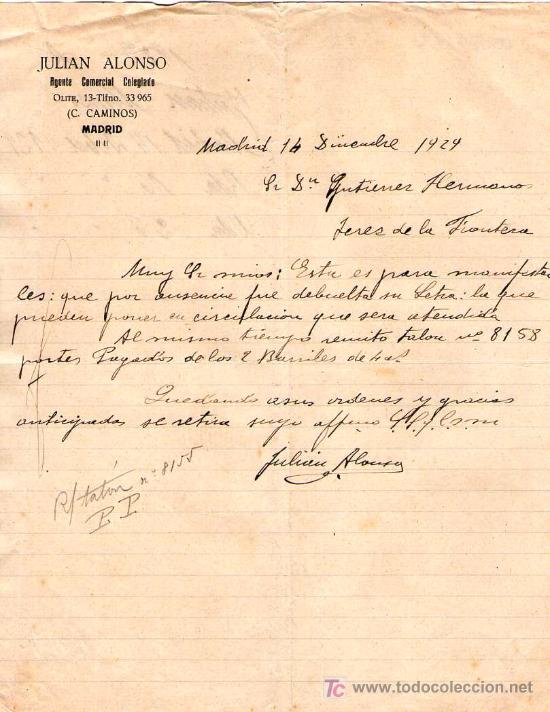 JULIAN ALONSO
Agente Comercial Colegiado
OLITE, 13-Tlfno. 33 965
(C. CAMINOS)
MADRID
Madrid 14 Diciembre 1929
Sr Dn Gutierrez Hermanos
Jerez de la Frontera
Muy Sr mios; Esta es para manifestar
les: que por ausencia fue debuelta su Letra: la que
pueden poner en circulacion que sera atendida
Al mismo tiempo remito talon nº 8158
portes Pagados de los 2 Barriles de
Quedando asus ordenes y gracias
anticipadas se retira suyo affmo
Julian Alonso
R/ talón nº 8155
P P
TC www.todocoleccion.net